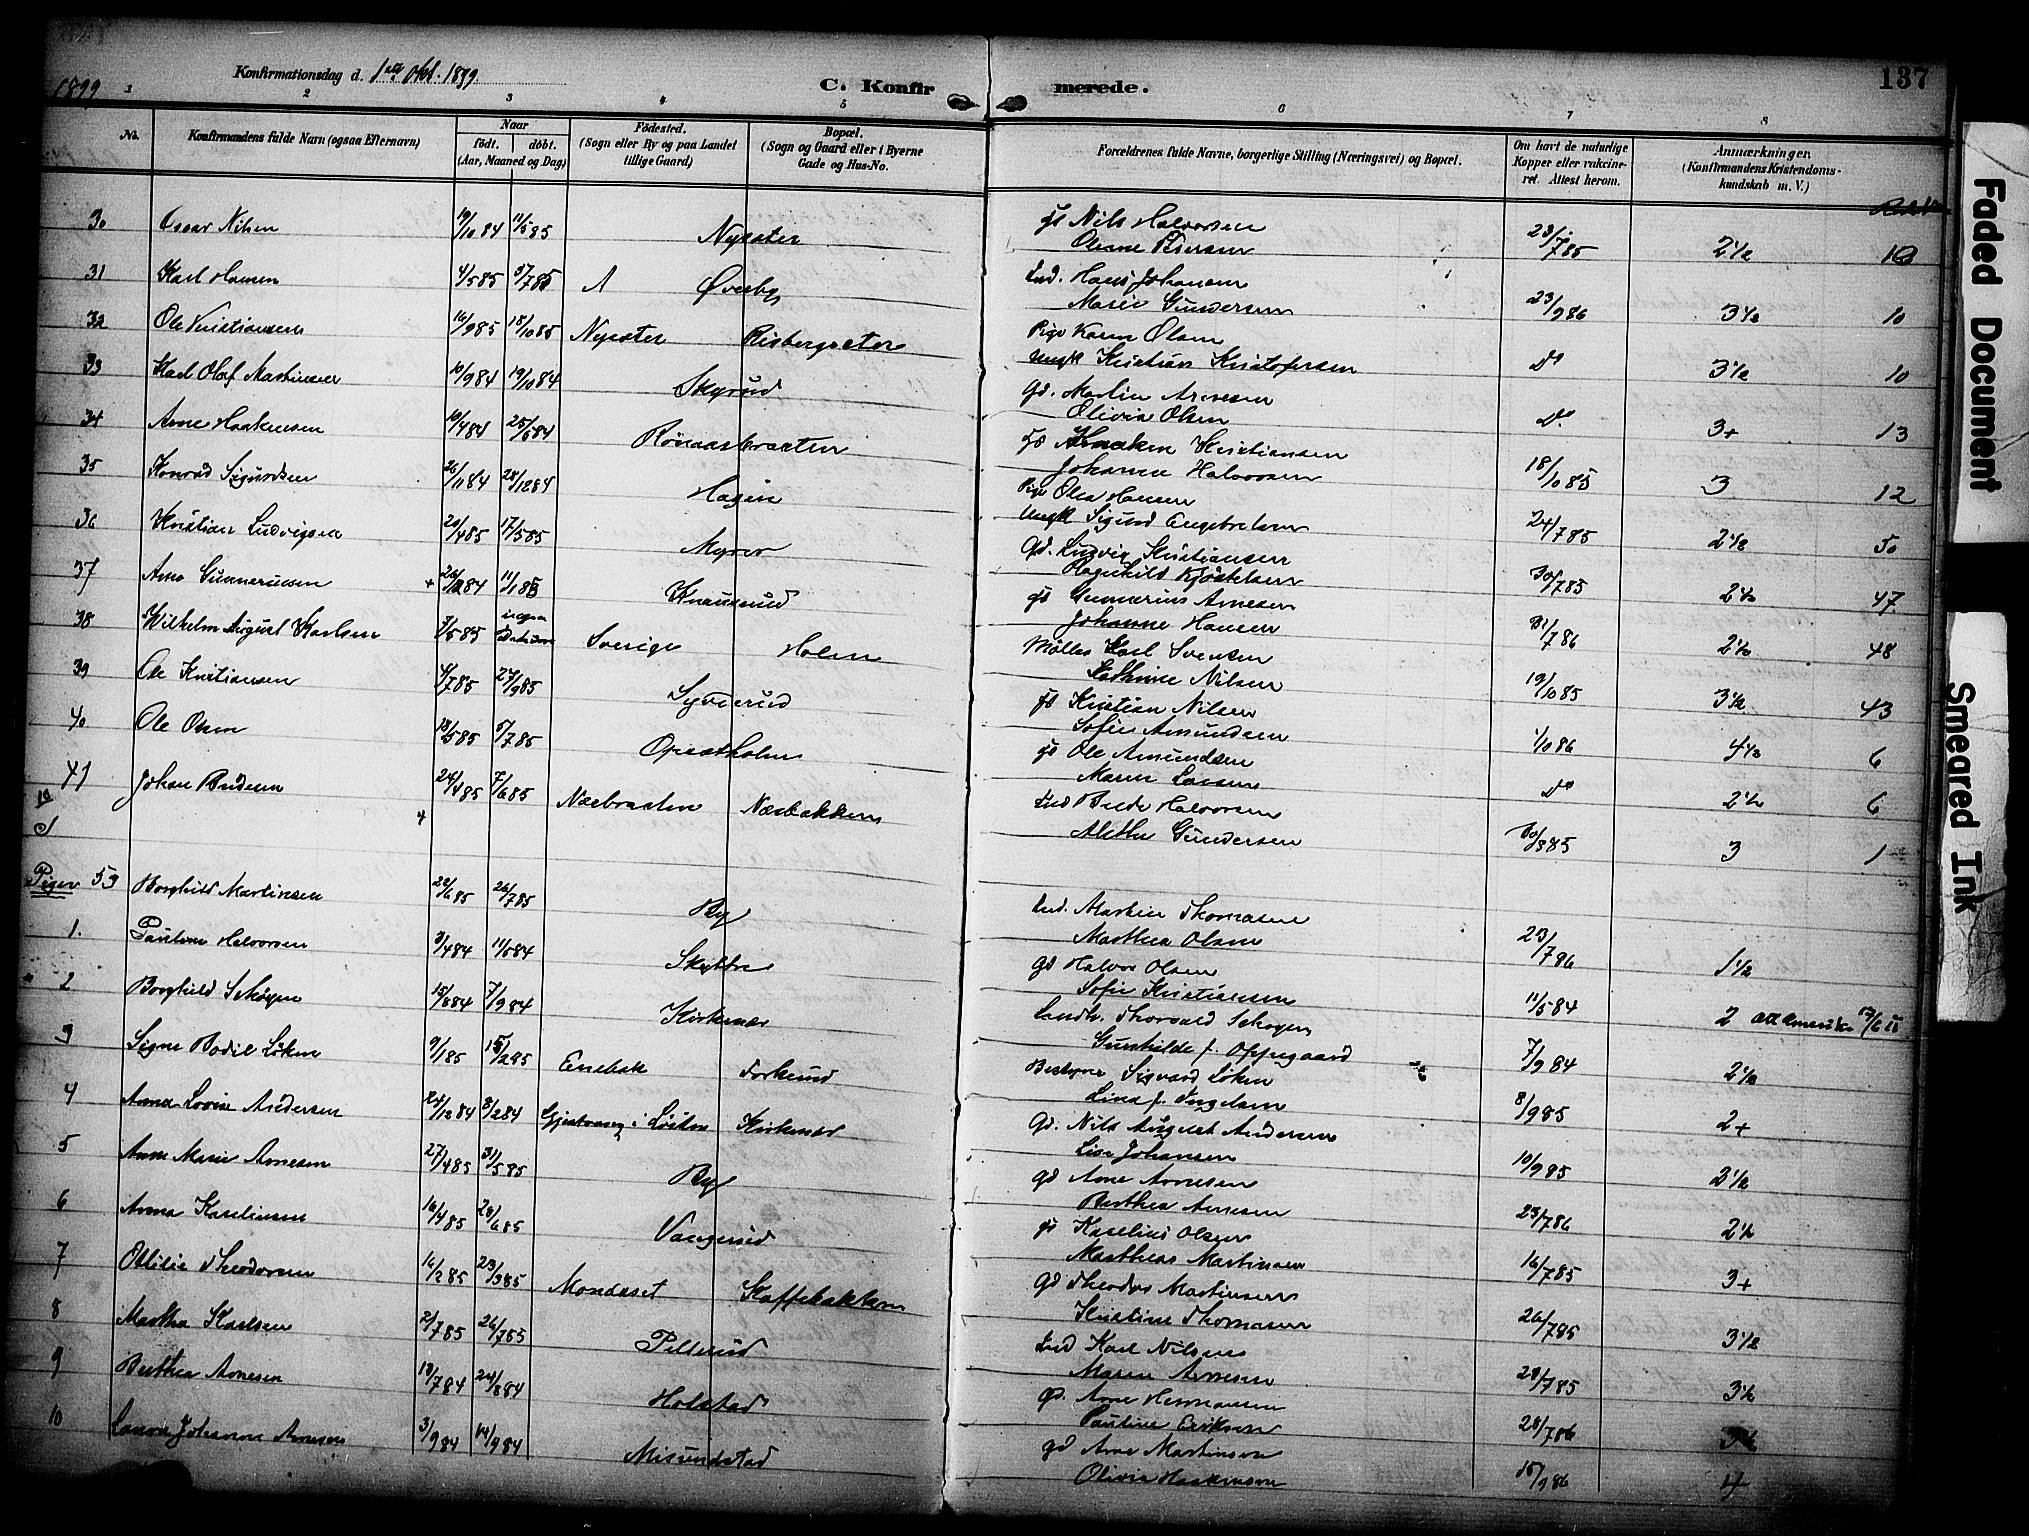 1899 Konfirmationsdag d. 1ste Okt. 1899. C. Konfirmerede. 137
1 2 3 4 5 6 7 8
No. Konfirmandens fulde Navn (ogsaa Efternavn) Naar født. døbt. (Aar, Maaned og Dag) Fødested. (Sogn eller By og paa Landet tillige Gaard) Bopæl. (Sogn og Gaard eller i Byerne Gade og Hus-No. Forældrenes fulde Navne, borgerlige Stilling (Næringsvei) og Bopæl. Om havt de naturlige Kopper eller vakcineret. Attest herom. Anmærkninger. (Konfirmandens Kristendomskundskab m. V.)
30 Oscar Nilsen 19/10 84 11/5 85 Nysæter gs Nils Halvorsen
Oline Pedersen 23/7 85 2 1/2 10
31 Karl Hansen 4/5 85 5/7 85 Øverby Ind. Hans Johansen
Marie Gundersen 23/9 86 3 1/2 10
32 Ole Kristiansen 16/9 85 18/10 85 Nysæter Risbergsæter Pige Karen Olsen
Ungk Kristian Kristofersen do 3 1/2 10
33 Karl Olaf Martinsen 10/9 84 19/10 84 Skyrud Gd. Martin Arnesen
Olivia Olsen do 3+ 13
34 Arne Haakensen 19/4 84 25/5 84 Rönaasbraaten gs Haaken Kristiansen
Johanne Halvorsen 18/10 85 3 12
35 Konrad Sigurdsen 26/11 84 28/12 84 Hagen Pige Olea Hansen
Ungk Sigurd Engebretsen 24/7 85 2 1/2 50
36 Kristian Ludvigsen 20/4 85 17/5 85 Myrer Gd. Ludvig Kristiansen
Ragnhild Kjöstelsen 30/7 85 2 1/2 47
37 Arne Gunneriusen + 11/1 85 Knausrud gs Gunnerius Arnesen
Johanne Hansen 31/7 86 2 1/2 48
38 Wilhelm August Karlsen 7/5 85 ingen Datum Sverige Holen Møller Karl Svensen
Kathrine Nilsen 19/10 85 3 1/2 43
39 Ole Kristiansen 4/7 85 27/9 85 Syverud gs Kristian Nilsen
Sofie Amundsen 1/10 86 4 1/2 6
40 Ole Olsen 5/7 85 Opsetholm gs Ole Amundsen
Maren Larsen do 2 1/2 6
41 Johan Bredesen 24/4 85 7/6 85 Næsbraaten Næsbakken Ind Brede Halvorsen
Alethe Gundersen 3 1
Piger 53 Borghild Martinsen 22/6 85 26/7 85 By Ind. Martin Thomasen
Marthea Olsen 23/7 86 1 1/2
1. Pauline Halvorsen 3/4 84 11/5 84 Skytten gd Halvor Olsen
Sofie Kristiansen 11/5 84 2
2 Borghild Schøyen 15/8 84 7/9 84 Kirkenær Landh. Thorvald Schøyen
Gunhilde f. Oppegaard 7/9 84 2 1/2
3 Signe Bodil Løken 9/1 85 15/2 85 Enebak Torkerud Bestyrer Sigvard Løken
Lina f. Ingelsen 8/9 85 2+
4 Anna Lovise Andersen 24/12 84 8/2 84 Gjestvang i Løiten Kirkenær Gd. Nils August Andersen
Lise Johansen 10/9 85 2 1/2
5 Anne Marie Arnesen 27/4 85 31/5 85 By gd Arne Arnesen
Berthea Arnesen 23/7 86 2 1/2
6 Anna Karelinsen 16/4 85 28/6 85 Vangerud gs Karelius Olsen
Marthea Martinsen 16/7 85 3+
7 Ottilie Theodorsen 16/2 85 23/3 85 Mondeset Kaffebakken Gd Theodor Martinsen
Kristine Thomasen 26/7 85 3 1/2
8 Martha Karlsen 2/7 85 26/7 85 Pellerud Ind Karl Nilsen
Maren Arnesen 28/7 85 3 1/2
9 Berthea Arnesen 13/7 84 24/8 84 Holstad gs. Arne Hermansen
Pauline Eriksen 28/7 86
10 Laura Johanne Arnesen 3/9 84 14/9 84 Misundstad gd Arne Martinsen
Olivia Haakensen 15/9 86 4
Faded Document
Smeared Ink